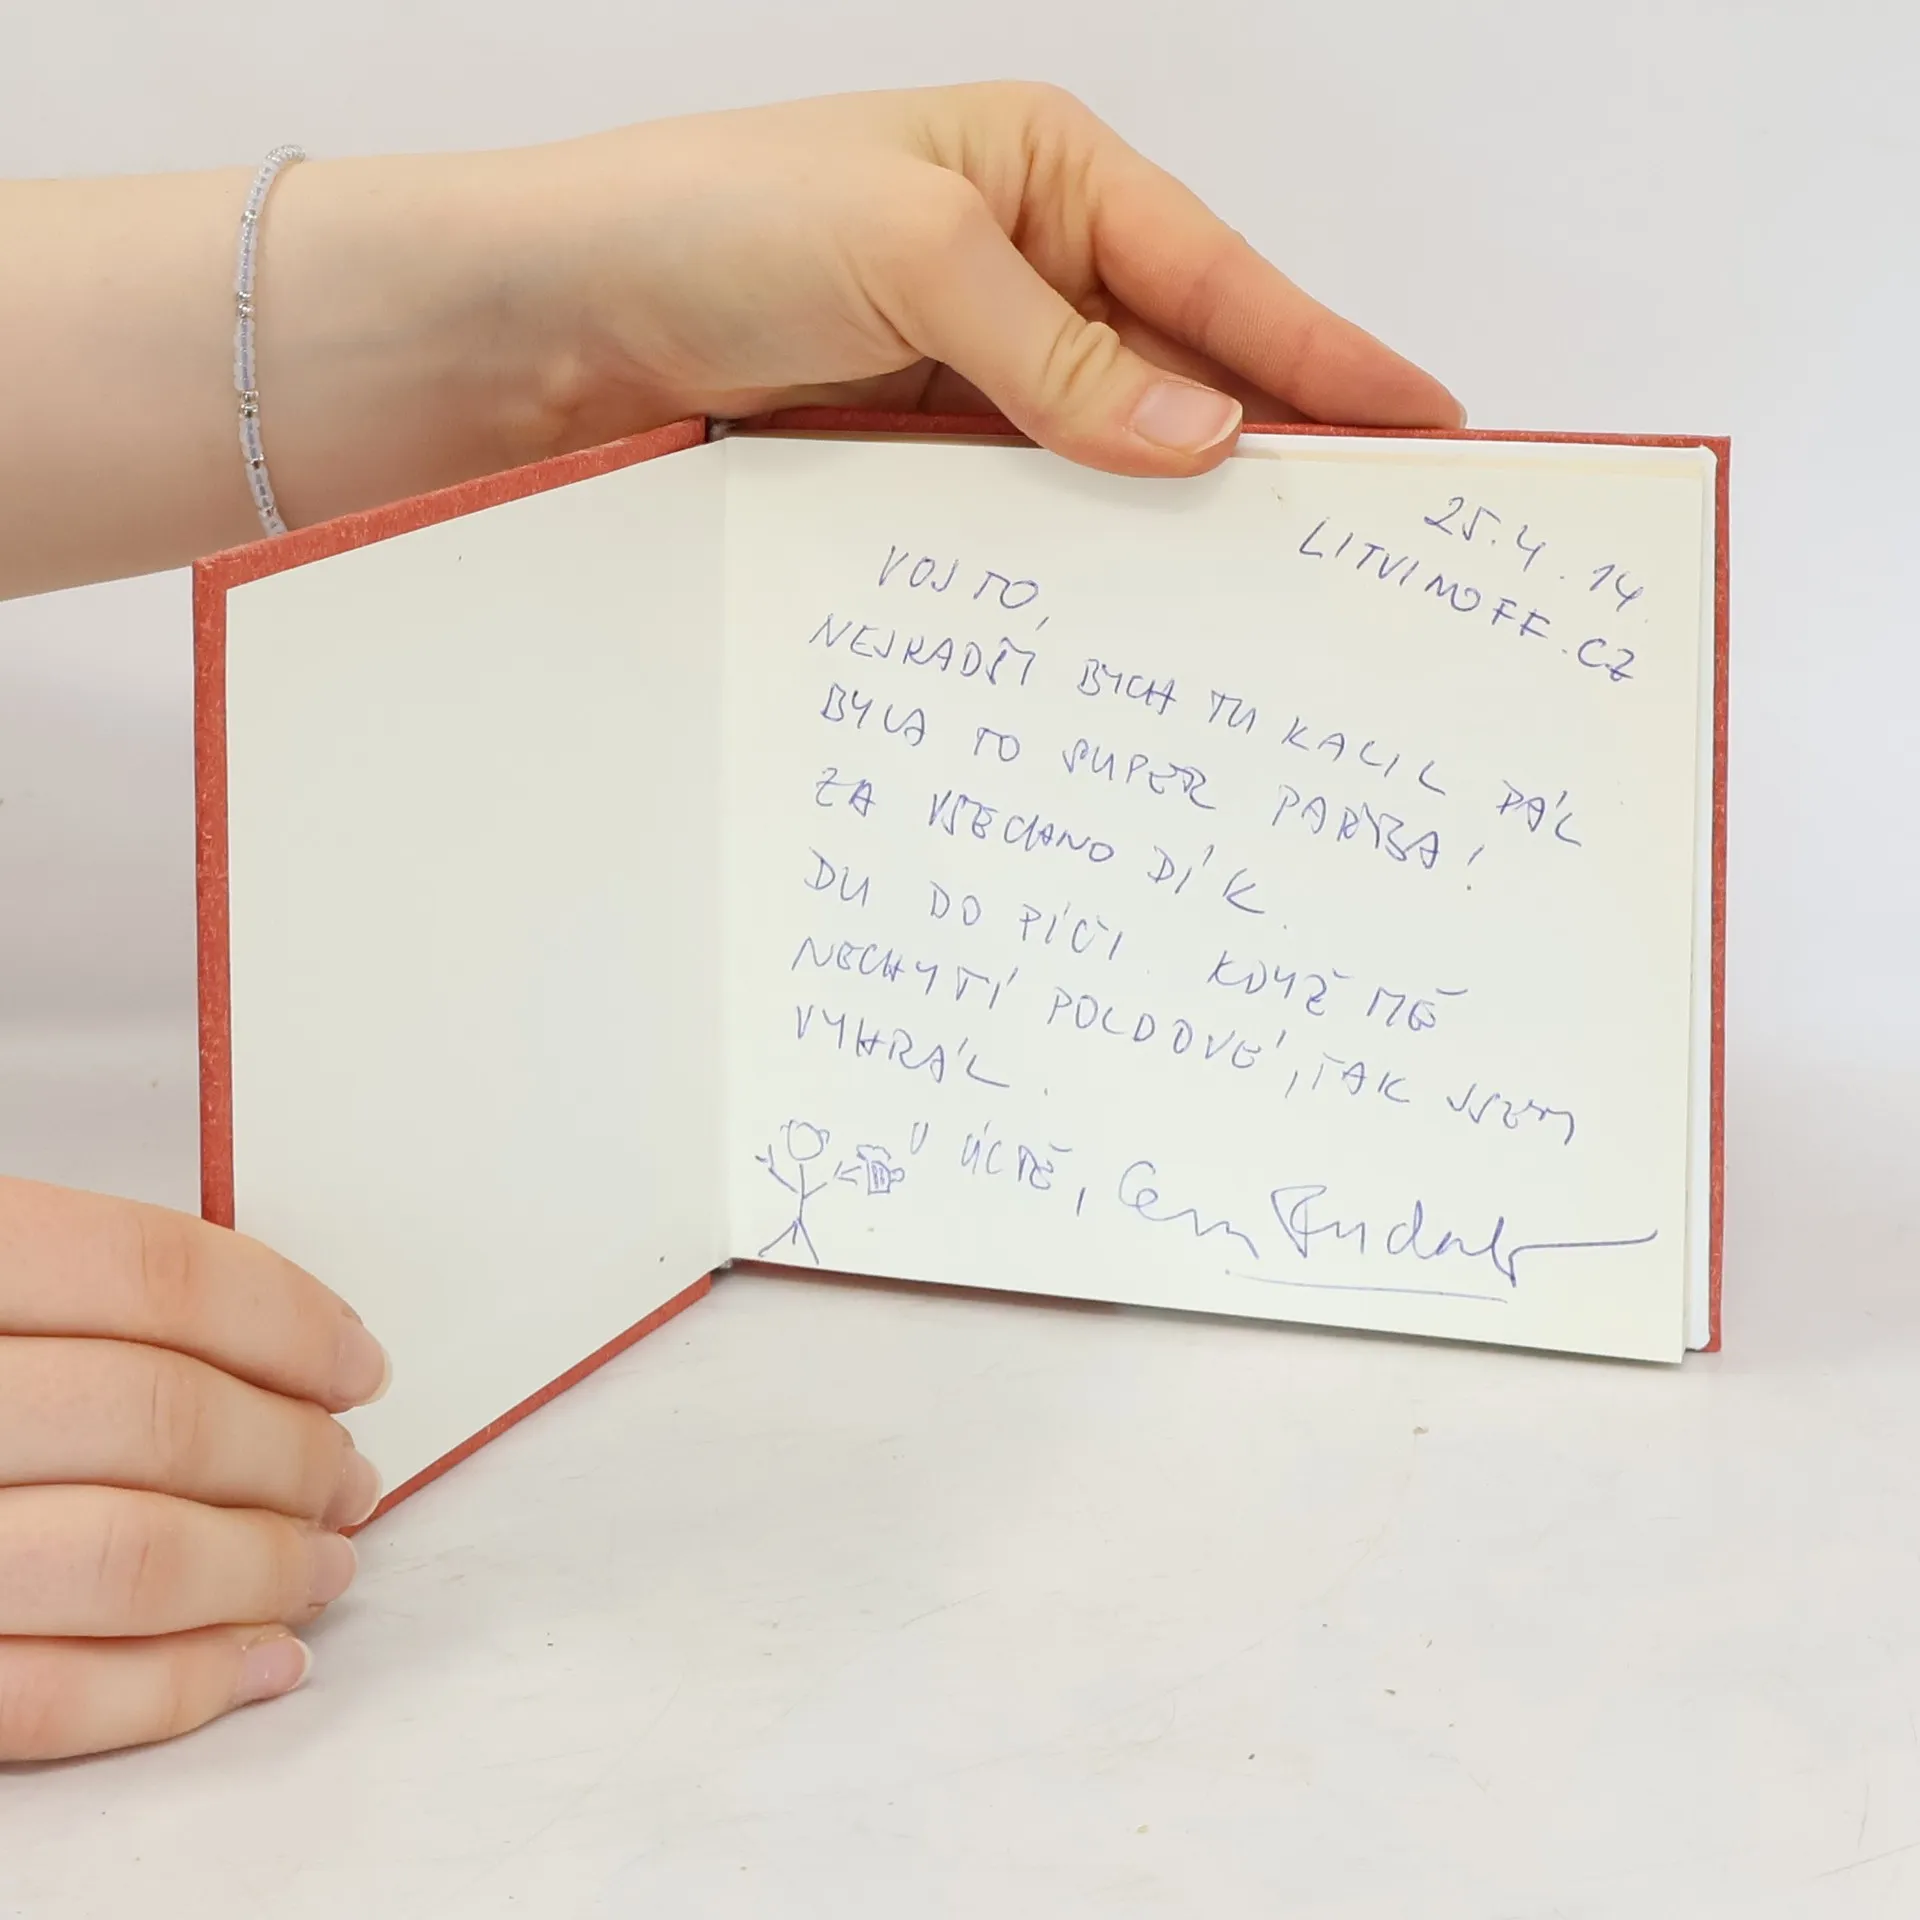 25.4.14
LITVINOFF.CZ
VOJTO,
NEJRADŠI BYCH TU KALIL DÁL
BYLA TO SUPER PAŘBA!
ZA VŠECHNO DÍK.
DU DO PÍČI. KDYŽ MĚ
NECHYTÍ POLDOVÉ, TAK JSEM
VYHRÁL.
V ÚCTĚ,